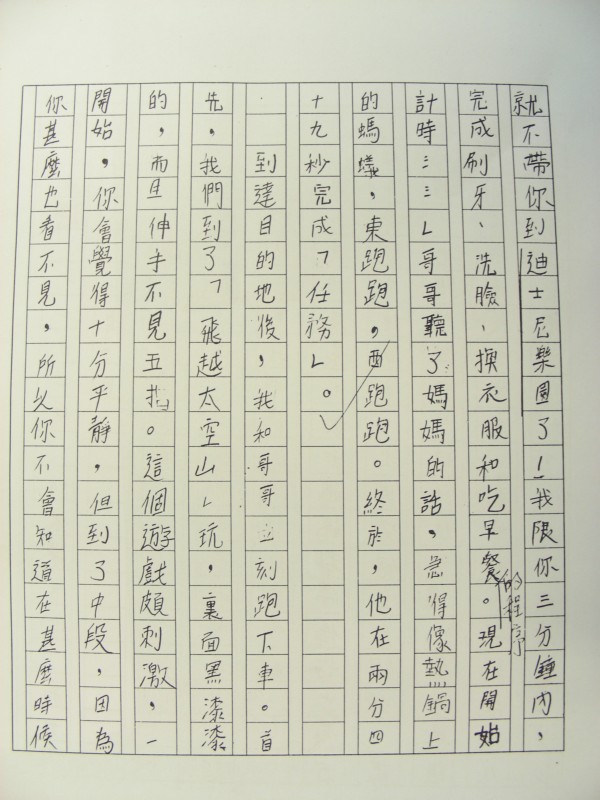 就不帶你到迪士尼樂園了！我限你三分鐘內，
完成刷牙、洗臉、換衣服和吃早餐的程序。現在開始
計時……」哥哥聽了媽媽的話，急得像熱鍋上
的螞蟻，東跑跑，西跑跑。終於，他在兩分四
十九秒完成「任務」。
到達目的地後，我和哥哥立刻跑下車。首
先，我們到了「飛越太空山」玩，裏面黑漆漆
的，而且伸手不見五指。這個遊戲頗刺激，一
開始，你會覺得十分平靜，但到了中段，因為
你甚麼也看不見，所以你不會知道在甚麼時候